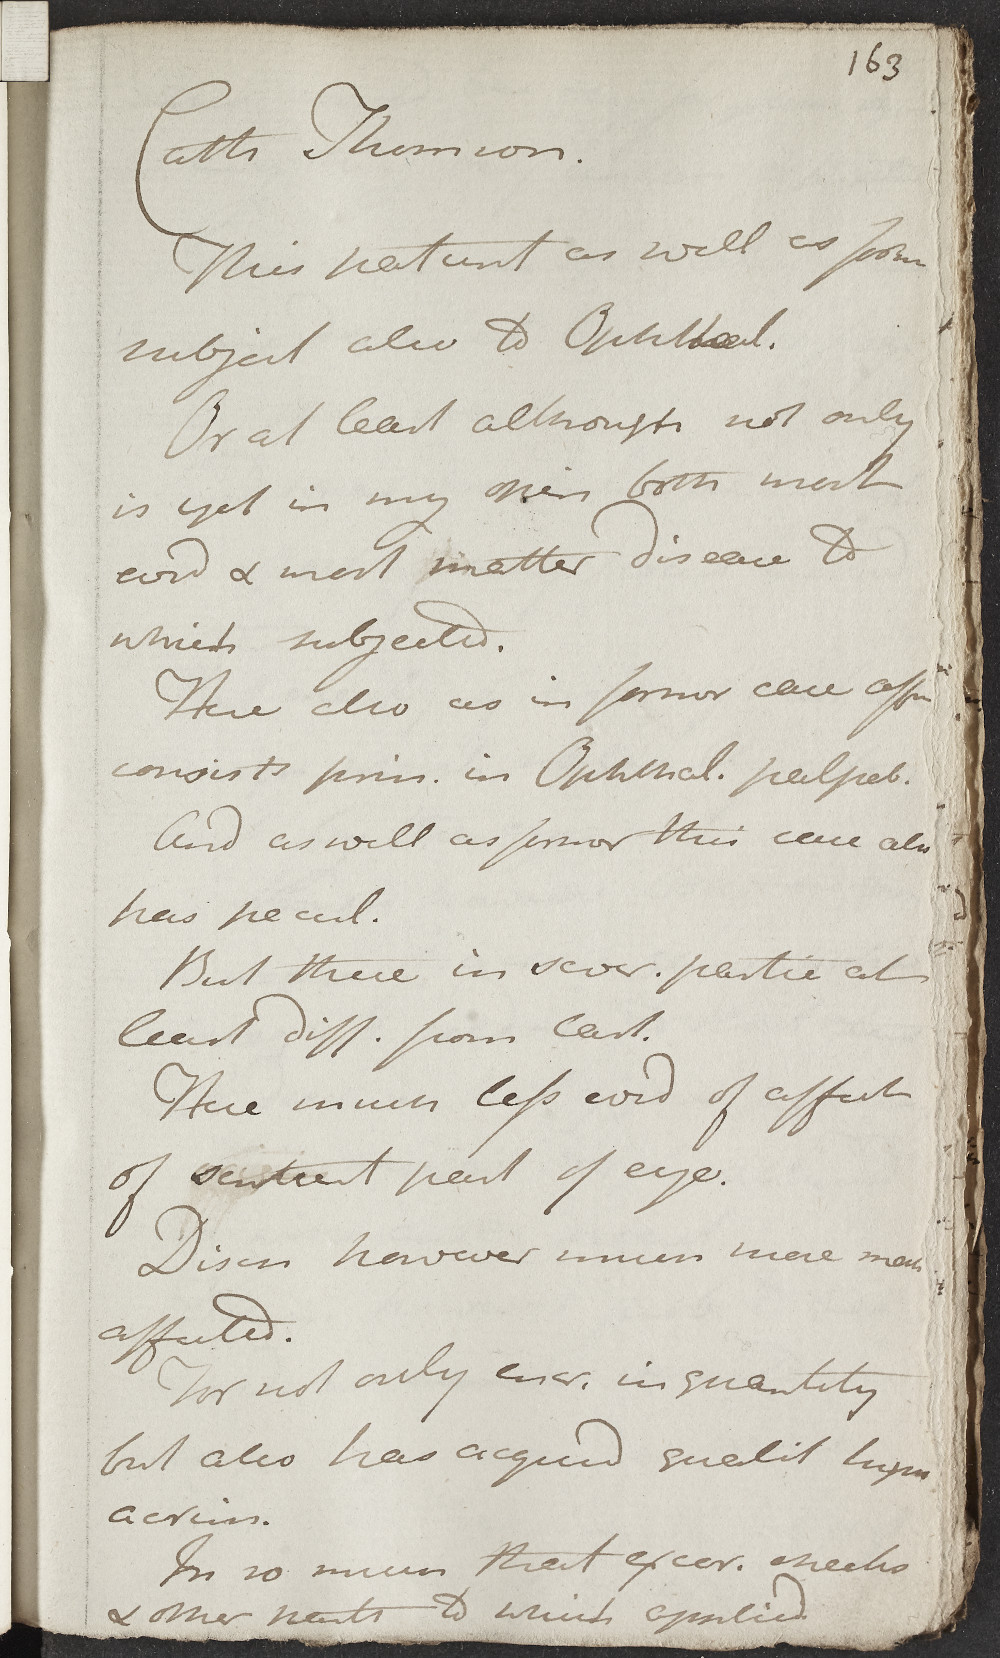 163
Cath Thomson.
This patient as well as form
subject also to Ophthal.
Or at least although not only
is yet in my opin both most
evid & most matter disease to
which subjected.
Here also as in formor case affn
consists prin. in Ophthal. palpeb.
And as well as formor this case also
has pecul.
But these in sever. partic at
least diff. from last.
Here much less evid of affect
of sentient part of eye.
Disch however much more
affected.
For not only encr. in quantity
but also has acquird qualit
acrim.
In so much that excor. cheeks
& other parts to which applied